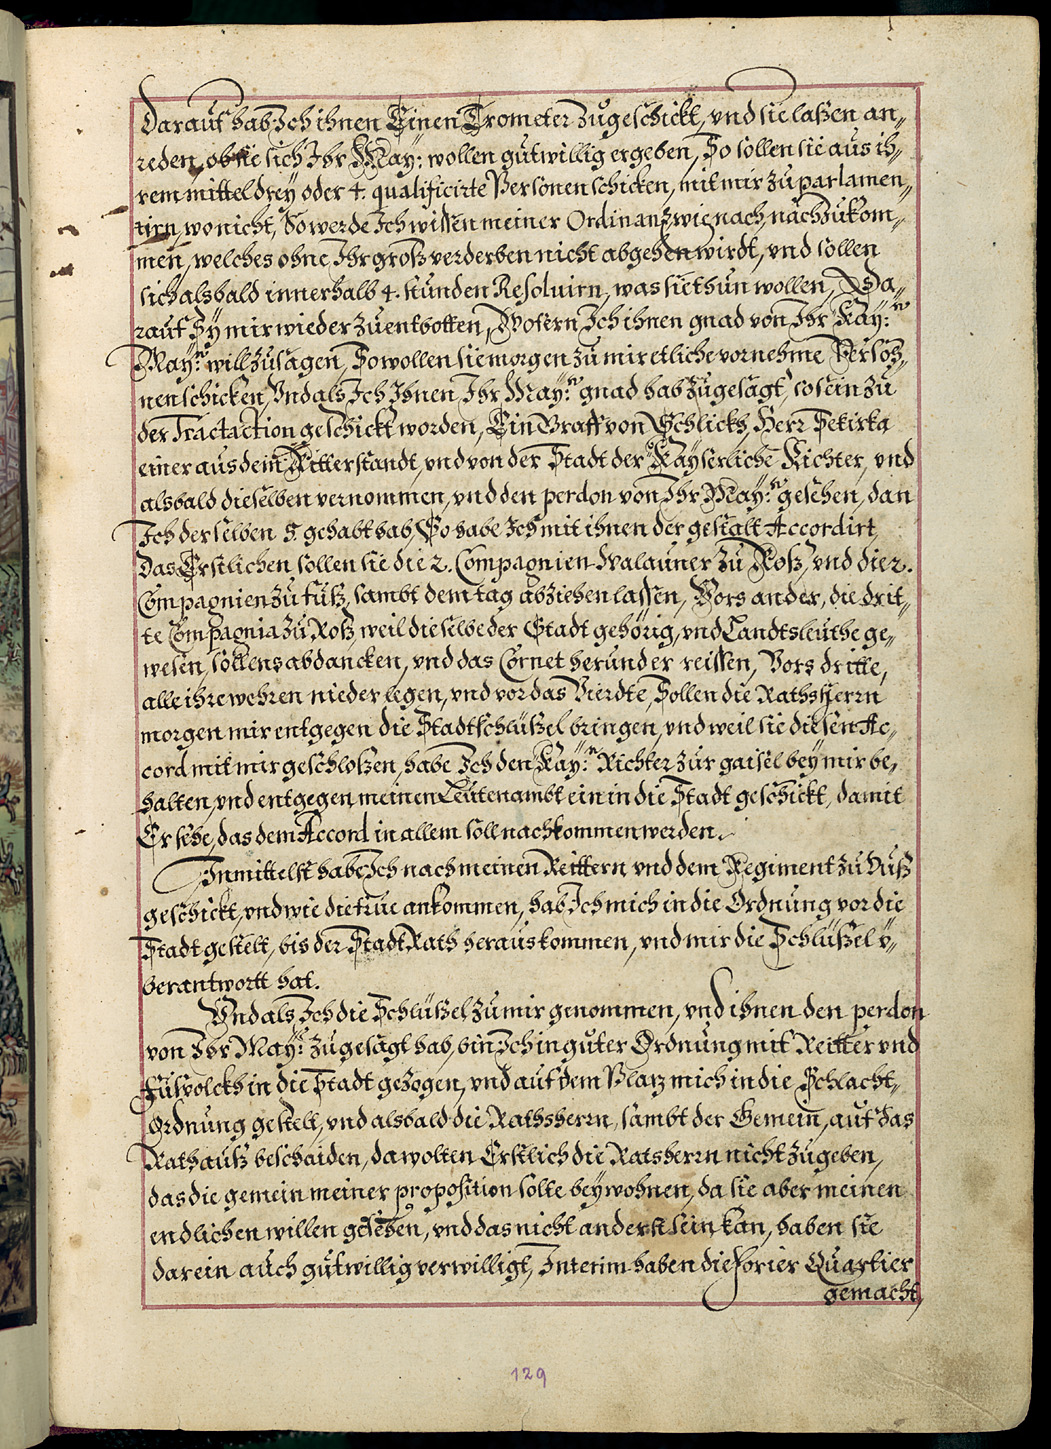 Darauf hab Ich ihnen Einen Trometer zugeschickt, vnd sie laßen an„
reden, ob sie sich Ihr May: wollen gutwillig ergeben, So sollen sie aus ih„
rem mittel drey oder 4. qualificirte Persönen schicken, mit mir zu parlamen„
tirn, wo nicht, So werde Ich wissen meiner Ordinantz wie nach, nachzukom„
men, welches ohne Ihr groß verderben nicht abgehen wirdt, vnd sollen
sich alsbald innerhalb 4. stunden Resoluirn, was sie thun wollen, Da„
rauf Sy mir wieder zuentbotten, Wofern Ich ihnen gnad von Ihr Kay:
May: will zusagen, So wollen sie morgen zu mir etliche vornehme Persoh„
nen schicken, Vnd als Ich Ihnen Ihr May: gnad hab zugesagt, so sein zu
der Tractaction geschickt worden, Ein Graff von Schlickh, Herr Sekirka
einer aus dem Ritterstandt, vnd von der Stadt der Kayserliche Richter, vnd
alsbald dieselben vernommen, vnd den perdon von Ihr May: gesehen, dan
Ich derselben 5 gehabt hab, So habe Ich mit ihnen der gestalt Accordirt,
Das Erstlichen sollen sie die 2. Compagnien Walauner zu Roß, vnd die 2.
Compagnien zu fuß, sambt dem tag abziehen lassen, Vors ander, die drit„
te Compagnia zu Roß, weil dieselbe der Stadt gehörig, vnd Landtsleuthe ge„
wesen, sollens abdancken, vnd das Cornet herunder reissen, Vors dritte,
alle ihre wehren nieder legen, vnd vor das Vierdte, Sollen die Rathsherrn
morgen mir entgegen die Stadtschlüßel bringen, vnd weil sie diesen Ac„
cord mit mir geschloßen, habe Ich den Kay: Richter zur gaisel bey mir be„
halten, vnd entgegen meinen Leutenambt ein in die Stadt geschickt, damit
Er sehe, das dem Accord in allem soll nachkommen werden.
Inmittelst habe Ich nach meinen Reittern vnd dem Regiment zu Vuß
geschickt, vnd wie die frue ankommen, hab Ich mich in die Ordnung vor die
Stadt gestelt, bis der Stadt Rath heraus kommen, vnd mir die Schlüßel v„
berantwortt hat.
Vnd als Ich die Schlüßel zu mir genommen, vnd ihnen den perdon
von Ihr May: zugesagt hab, bin Ich in guter Ordnung mit Reitter vnd
Fusvolckh in die Stadt gezogen, vnd auf dem Platz mich in die Schlacht„
Ordnung gestelt, vnd alsbald die Rathsherrn, sambt der Gemein, auf das
Rathauß beschaiden, da wolten Erstlich die Ratsherrn nicht zugeben,
das die gemein meiner proposition solte beywohnen, da sie aber meinen
endlichen willen gesehen, vnd das nicht anderst sein kan, haben sie
darein auch gutwillig verwilligt, Interim haben die Forier Quartier
gemacht,
129